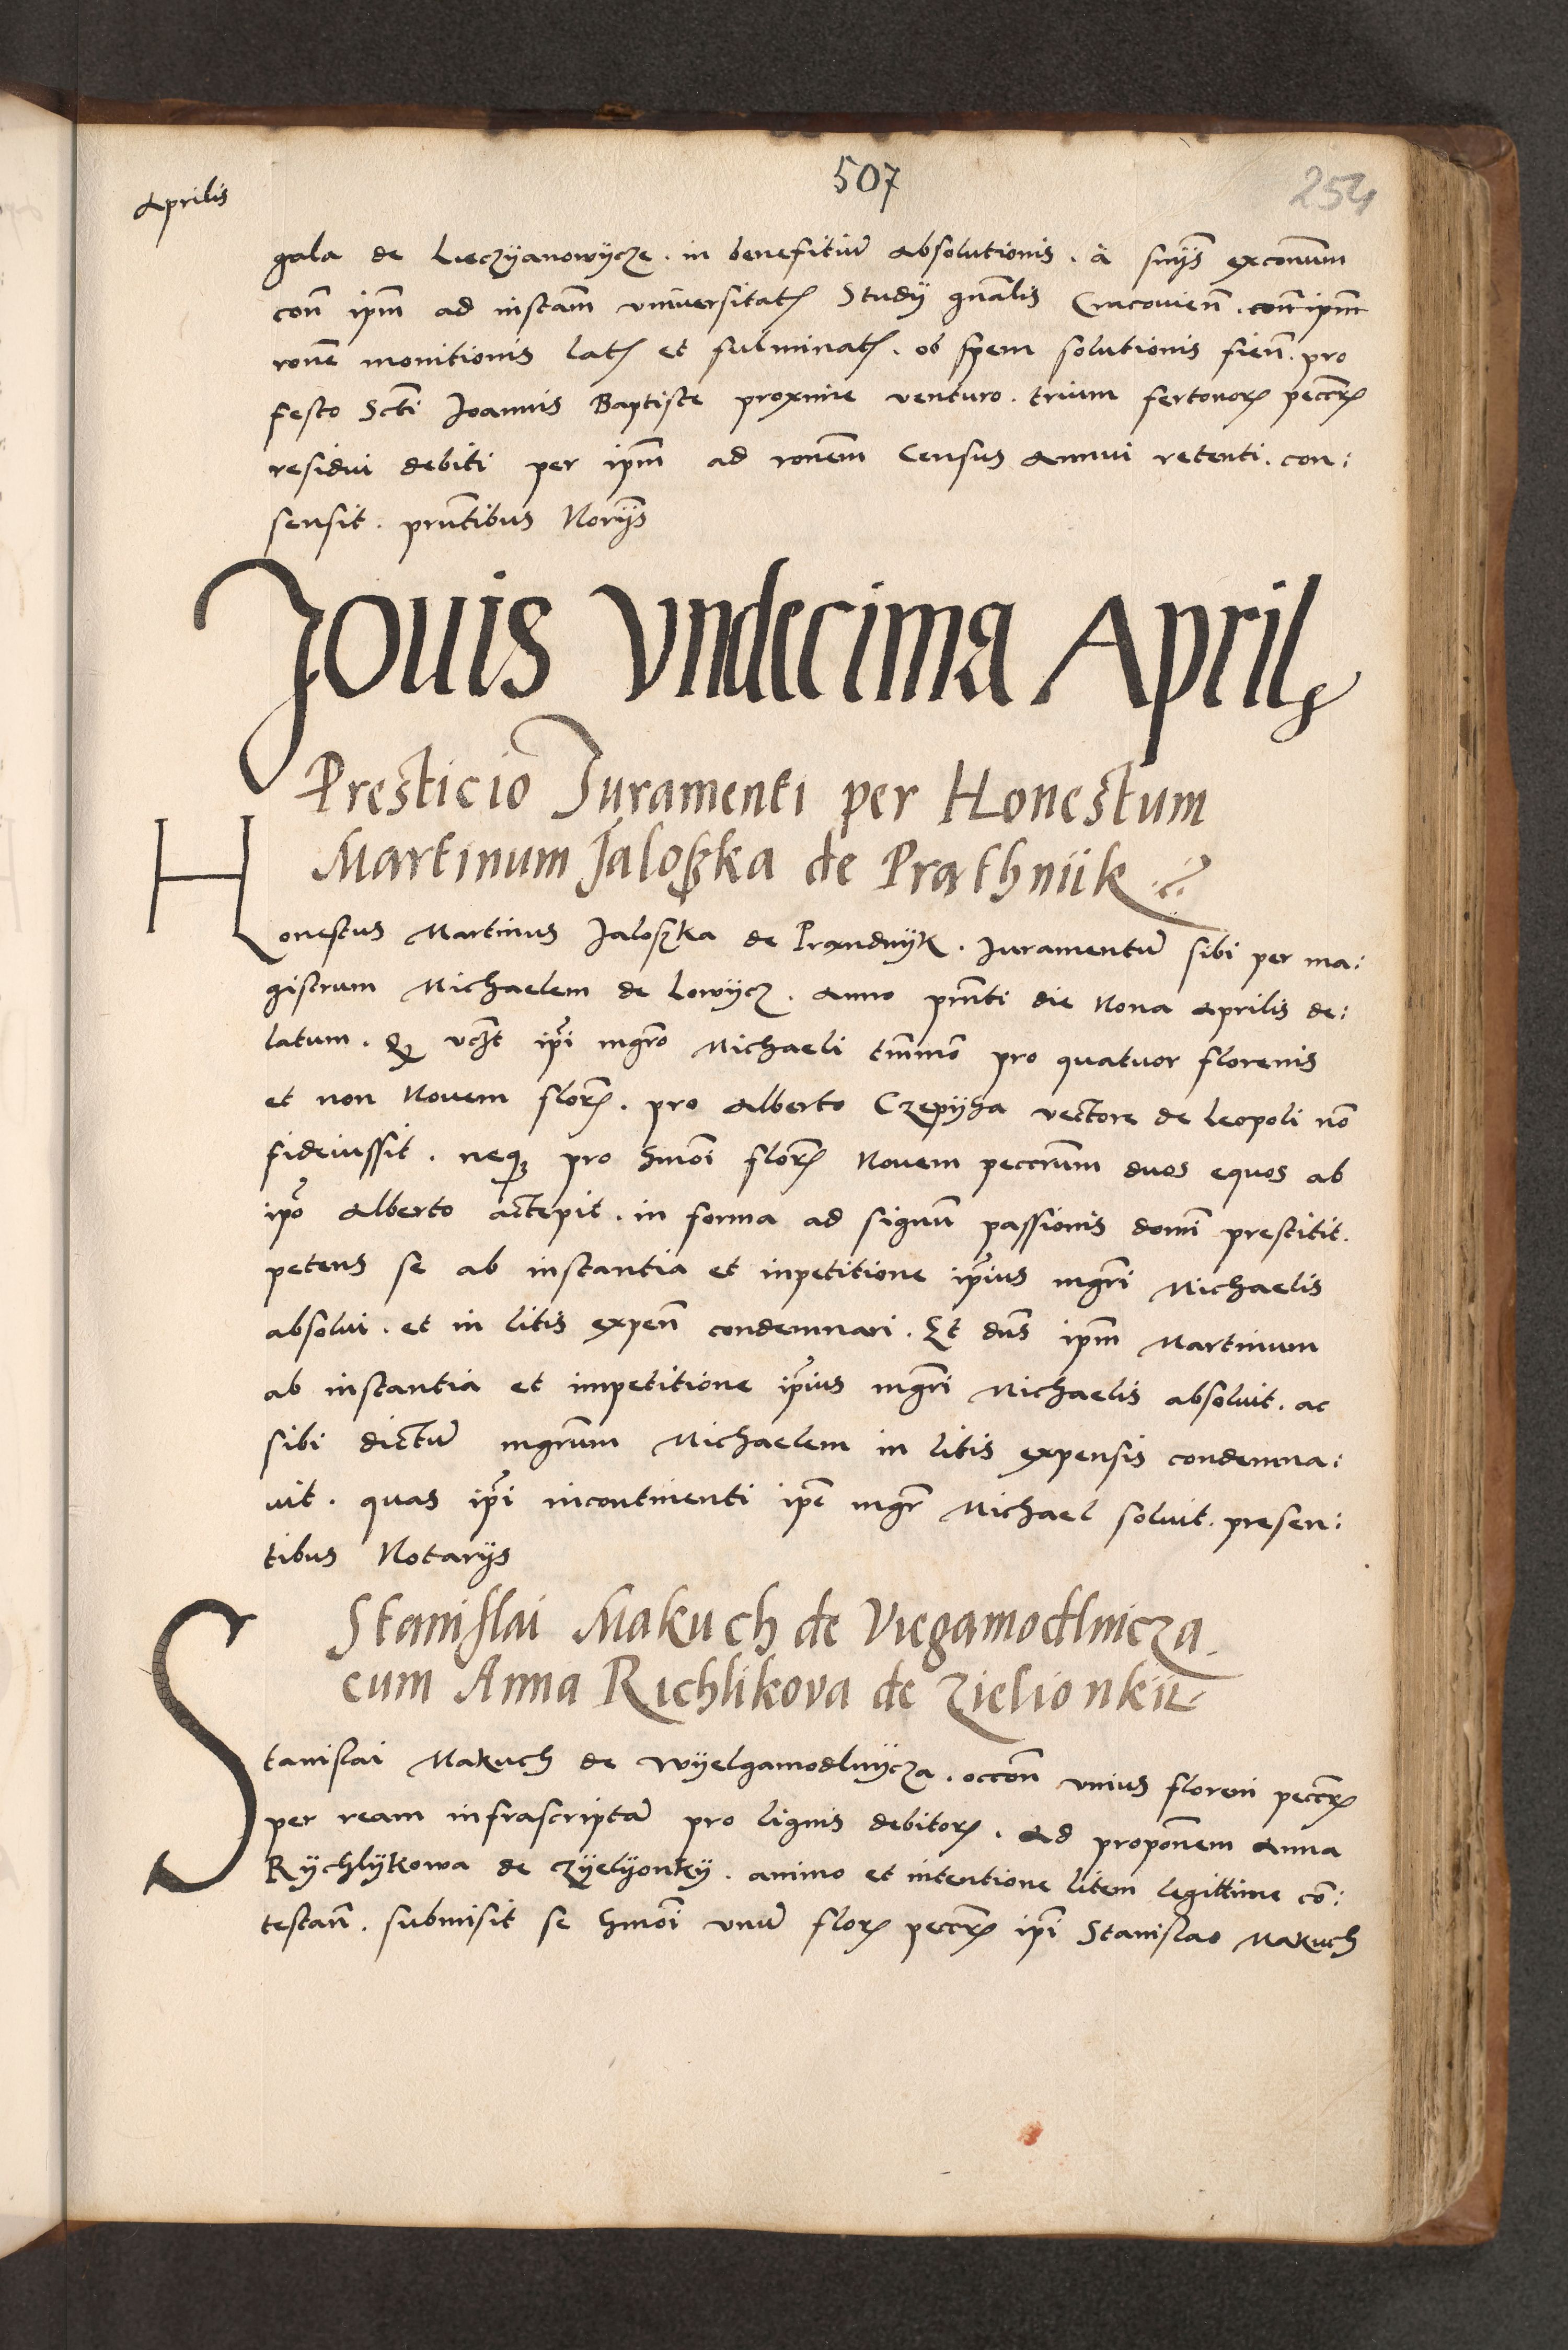 507
254
Aprilis
gala de Lieczÿanowÿcze . in benefitiu͂ absolutionis . à sn͂ÿs excom͂um
con͂ ip͂m ad instam͂ vniuersitatꝭ Studÿ gn͂alis Cracouien͂ . con͂ ip͂m
ron͂e monitionis latꝭ et fulminatꝭ . ob spem solutionis fien͂ . pro
festo Sc͂ti Joannis Baptiste proxime venturo . trium fertonorꝭ pecc͂rꝭ
residui debiti per ip͂m ad ron͂em Census Annui retenti . con:
sensit . prn͂tibus Nor͂ÿs
Jouis Vndecima Aprilꝭ
Presticio Juramenti per Honestum
Martinum Jaloszka de Prathniik
Honestus Martinus Jaloszka de Prandnÿk . Juramentu͂ sibi per ma:
gistrum Michaelem de Lowÿcz . Anno prn͂ti die Nona Aprilis de:
latum . ꝙ vc͂zt ip͂i mgr͂o Michaeli tm͂mo͂ pro quatuor florenis
et non Nouem flor͂ꝭ . pro Alberto Czepÿha vectore de Leopoli no͂
fideiussit . neqꝫ pro hm͂oi flor͂ꝭ Nouem peccr͂um duos equos ab
ip͂o Alberto actepit . in forma ad signu͂ passionis dom͂i prestitit .
petens se ab instantia et inpetitione ip͂ius mgr͂i Michaelis
absolui . et in litis expen͂ condemnari . Et dn͂s ip͂m Martinum
ab instantia et impetitione ip͂ius mgr͂i Michaelis absoluit . ac
sibi dictu͂ mgr͂um Michaelem in litis expensis condemna:
uit . quas ip͂i incontinenti ip͂e mgr͂ Michael soluit . presen:
tibus Notarÿs
Stanislai Makuch de Viegamodlnicza
cum Anna Richlikova de Zielionkii
Stanislai Makuch de Wÿelgamodlnÿcza . occon͂ vnius floreni pecc͂rꝭ
per ream infrascripta͂ pro lignis debitorꝭ . Ad propon͂em Anna
Rÿchlÿkowa de Zÿelÿonkÿ . animo et intentione litem legittime co͂:
testan͂ . submisit se hm͂oi vnu͂ florꝭ pecc͂rꝭ ip͂i Stanislao Makuch